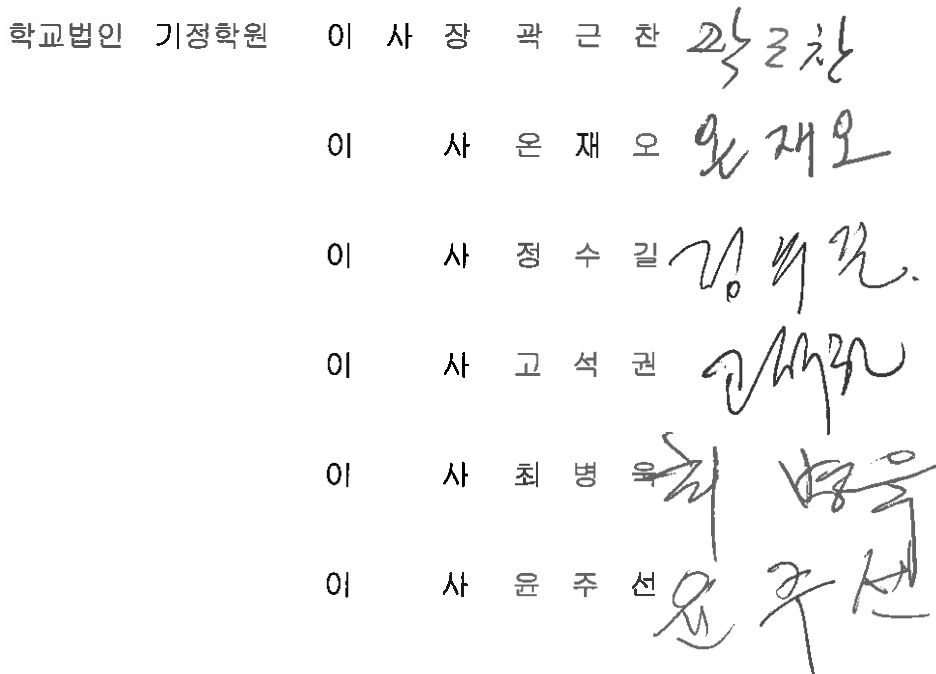 학교법인 기정학원 이 사 장 곽 근 찬 곽근찬
이 사 온 재 오 온재오
이 사 정 수 길
이 사 고 석 권 고석권
이 사 최 병 욱 최병욱
이 사 윤 주 선 윤주선